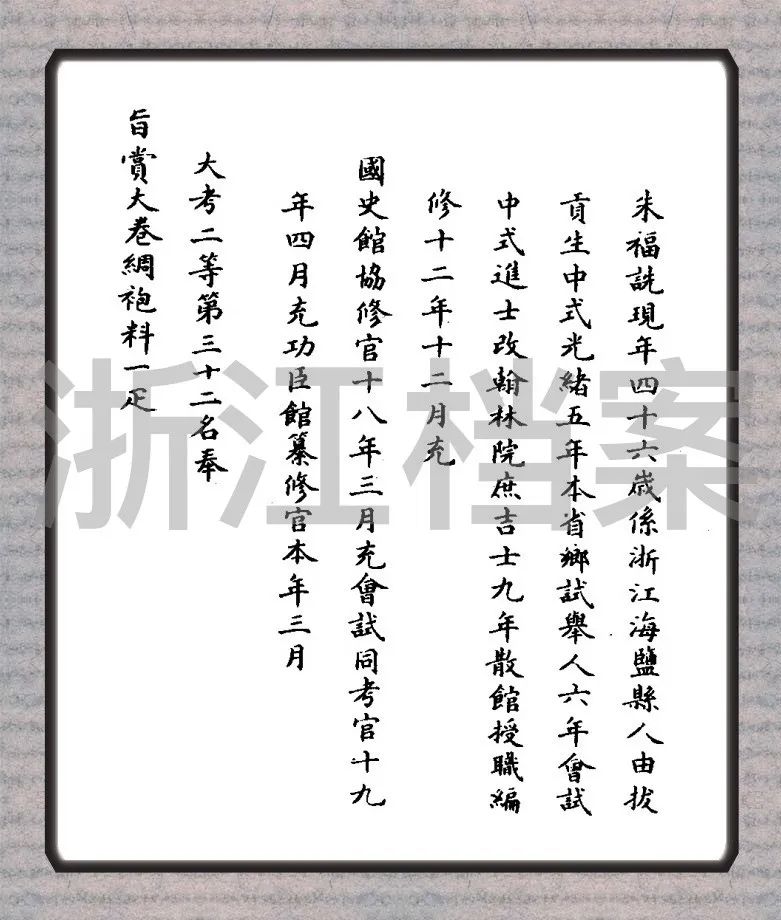 朱福詵現年四十六歲係浙江海鹽縣人由拔
貢生中式光緒五年本省鄉試舉人六年會試
中式進士改翰林院庶吉士九年散館授職編
修十二年十二月充
國史館協修官十八年三月充會試同考官十九
年四月充功臣館纂修官本年三月
大考二等第三十二名奉
旨賞大卷綢袍料一疋
浙江档案